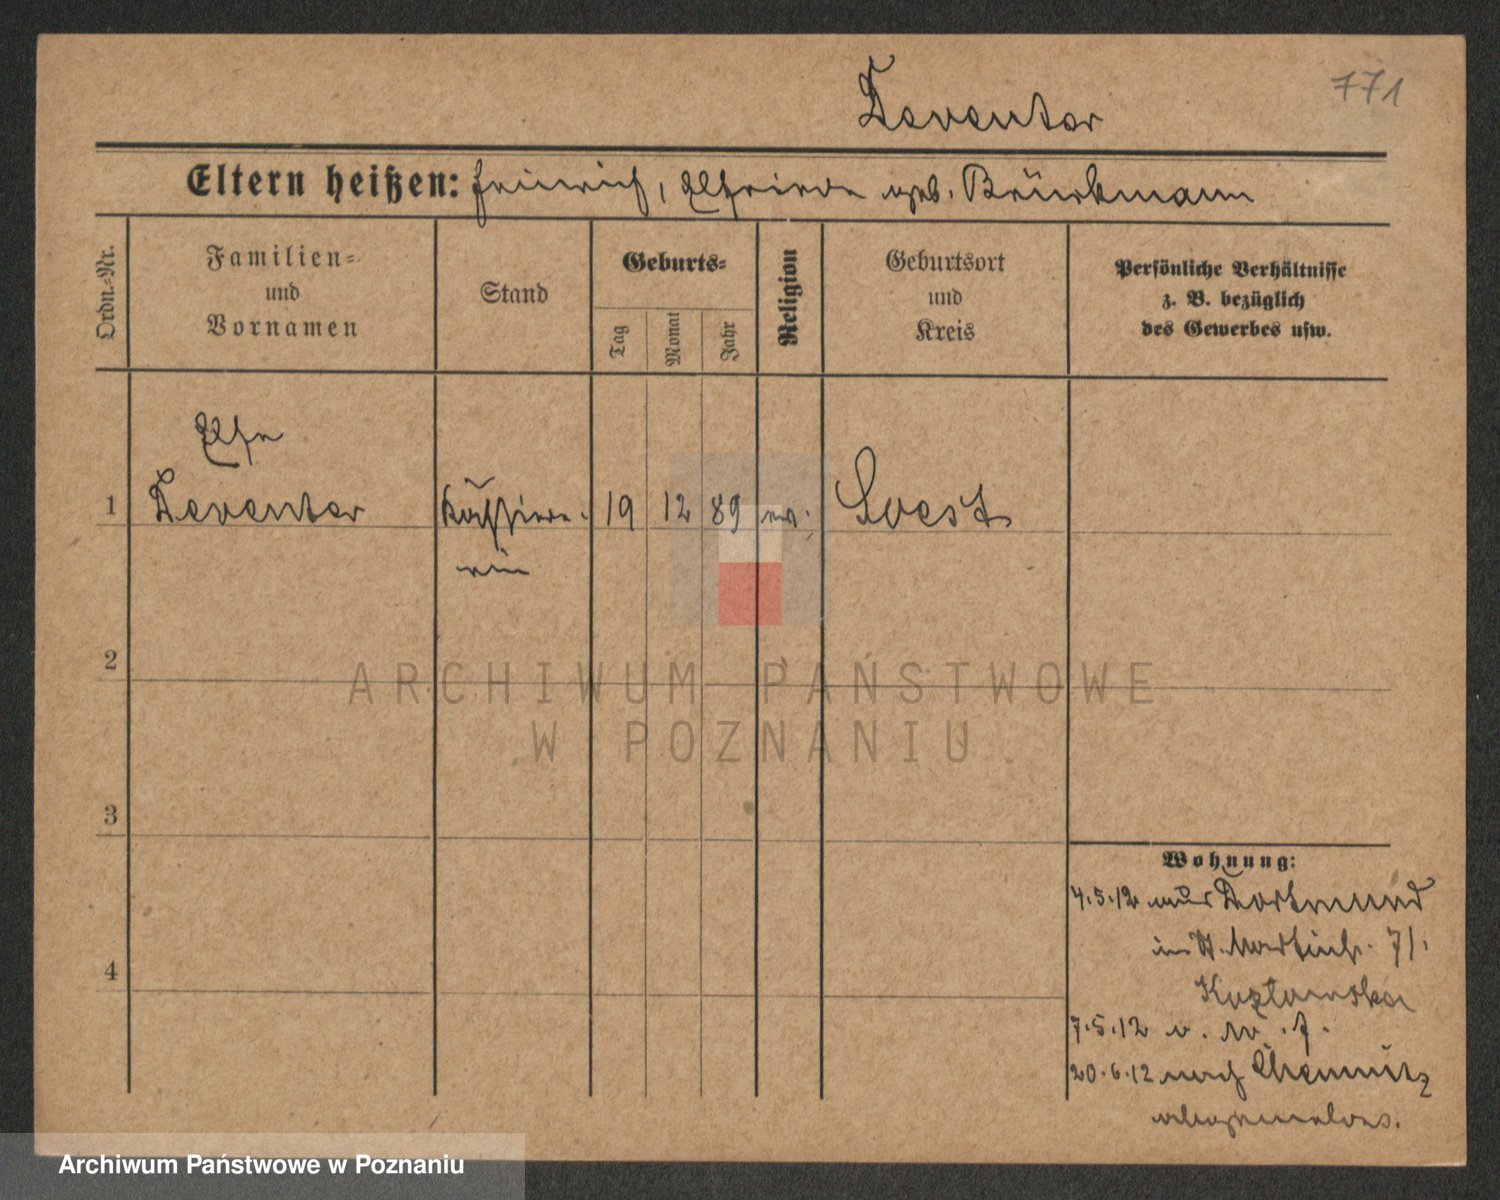 771
Deventer
Eltern heißen: Heinrich, Elfriede geb. Brinkmann
Ordn.-Nr.
Familien-
und
Vornamen
Stand
Geburts-
Tag
Monat
Jahr
Religion
Geburtsort
und
Kreis
Persönliche Verhältnisse
z. B. bezüglich
des Gewerbes usw.
Else
1 Deventer Kassiere- 19 12 89 ev. Soest
rin
2
ARCHIWUM PAŃSTWOWE
W POZNANIU
3
Wohnung:
4.5.12 aus Dortmund
in St. Martinstr. 71.
4
Kozlowska
7.5.12 v. w. f.
20.6.12 nach Chemnitz
abgemeldet.
Archiwum Państwowe w Poznaniu